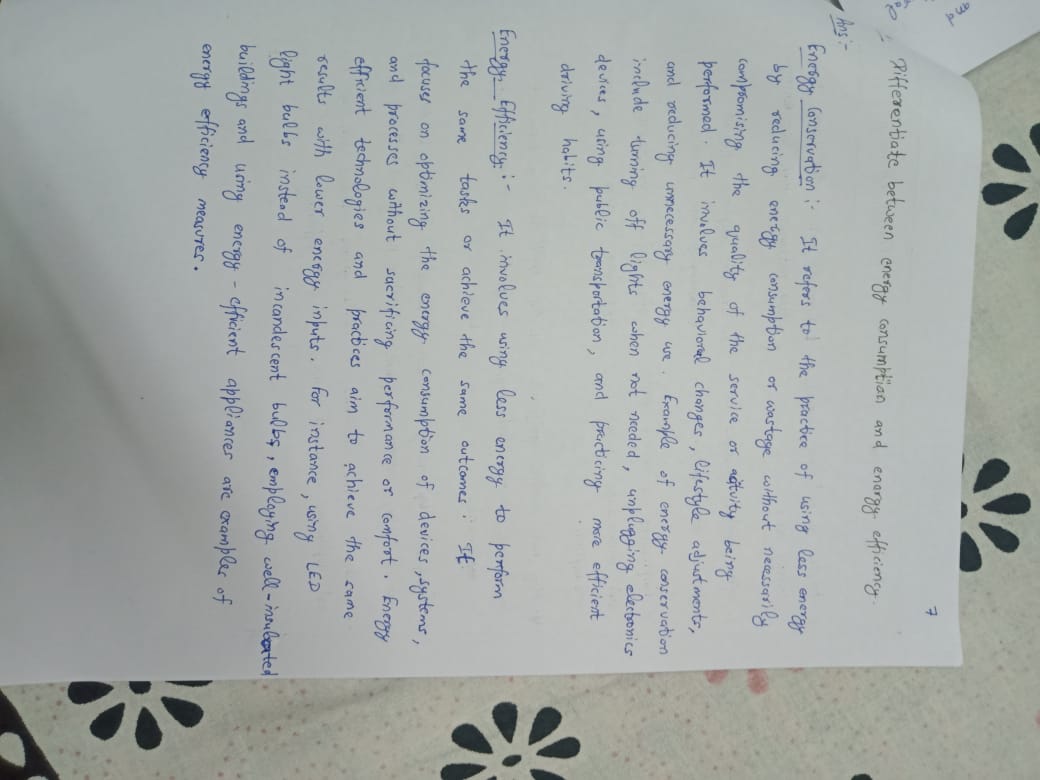 7
Differentiate between energy consumption and energy efficiency.
Ans:-
Energy Conservation :- It refers to the practice of using less energy
by reducing energy consumption or wastage without necessarily
compromising the quality of the service or activity being
performed. It involves behavioral changes, lifestyle adjustments,
and reducing unnecessary energy use. Example of energy conservation
include turning off lights when not needed, unplugging electronics
devices, using public transportation, and practicing more efficient
driving habits.
Energy Efficiency :- It involves using less energy to perform
the same tasks or achieve the same outcomes. It
focuses on optimizing the energy consumption of devices, systems,
and processes without sacrificing performance or comfort. Energy
efficient technologies and practices aim to achieve the same
results with lower energy inputs. For instance, using LED
light bulbs instead of incandescent bulbs, employing well-insulated
buildings and using energy-efficient appliances are examples of
energy efficiency measures.